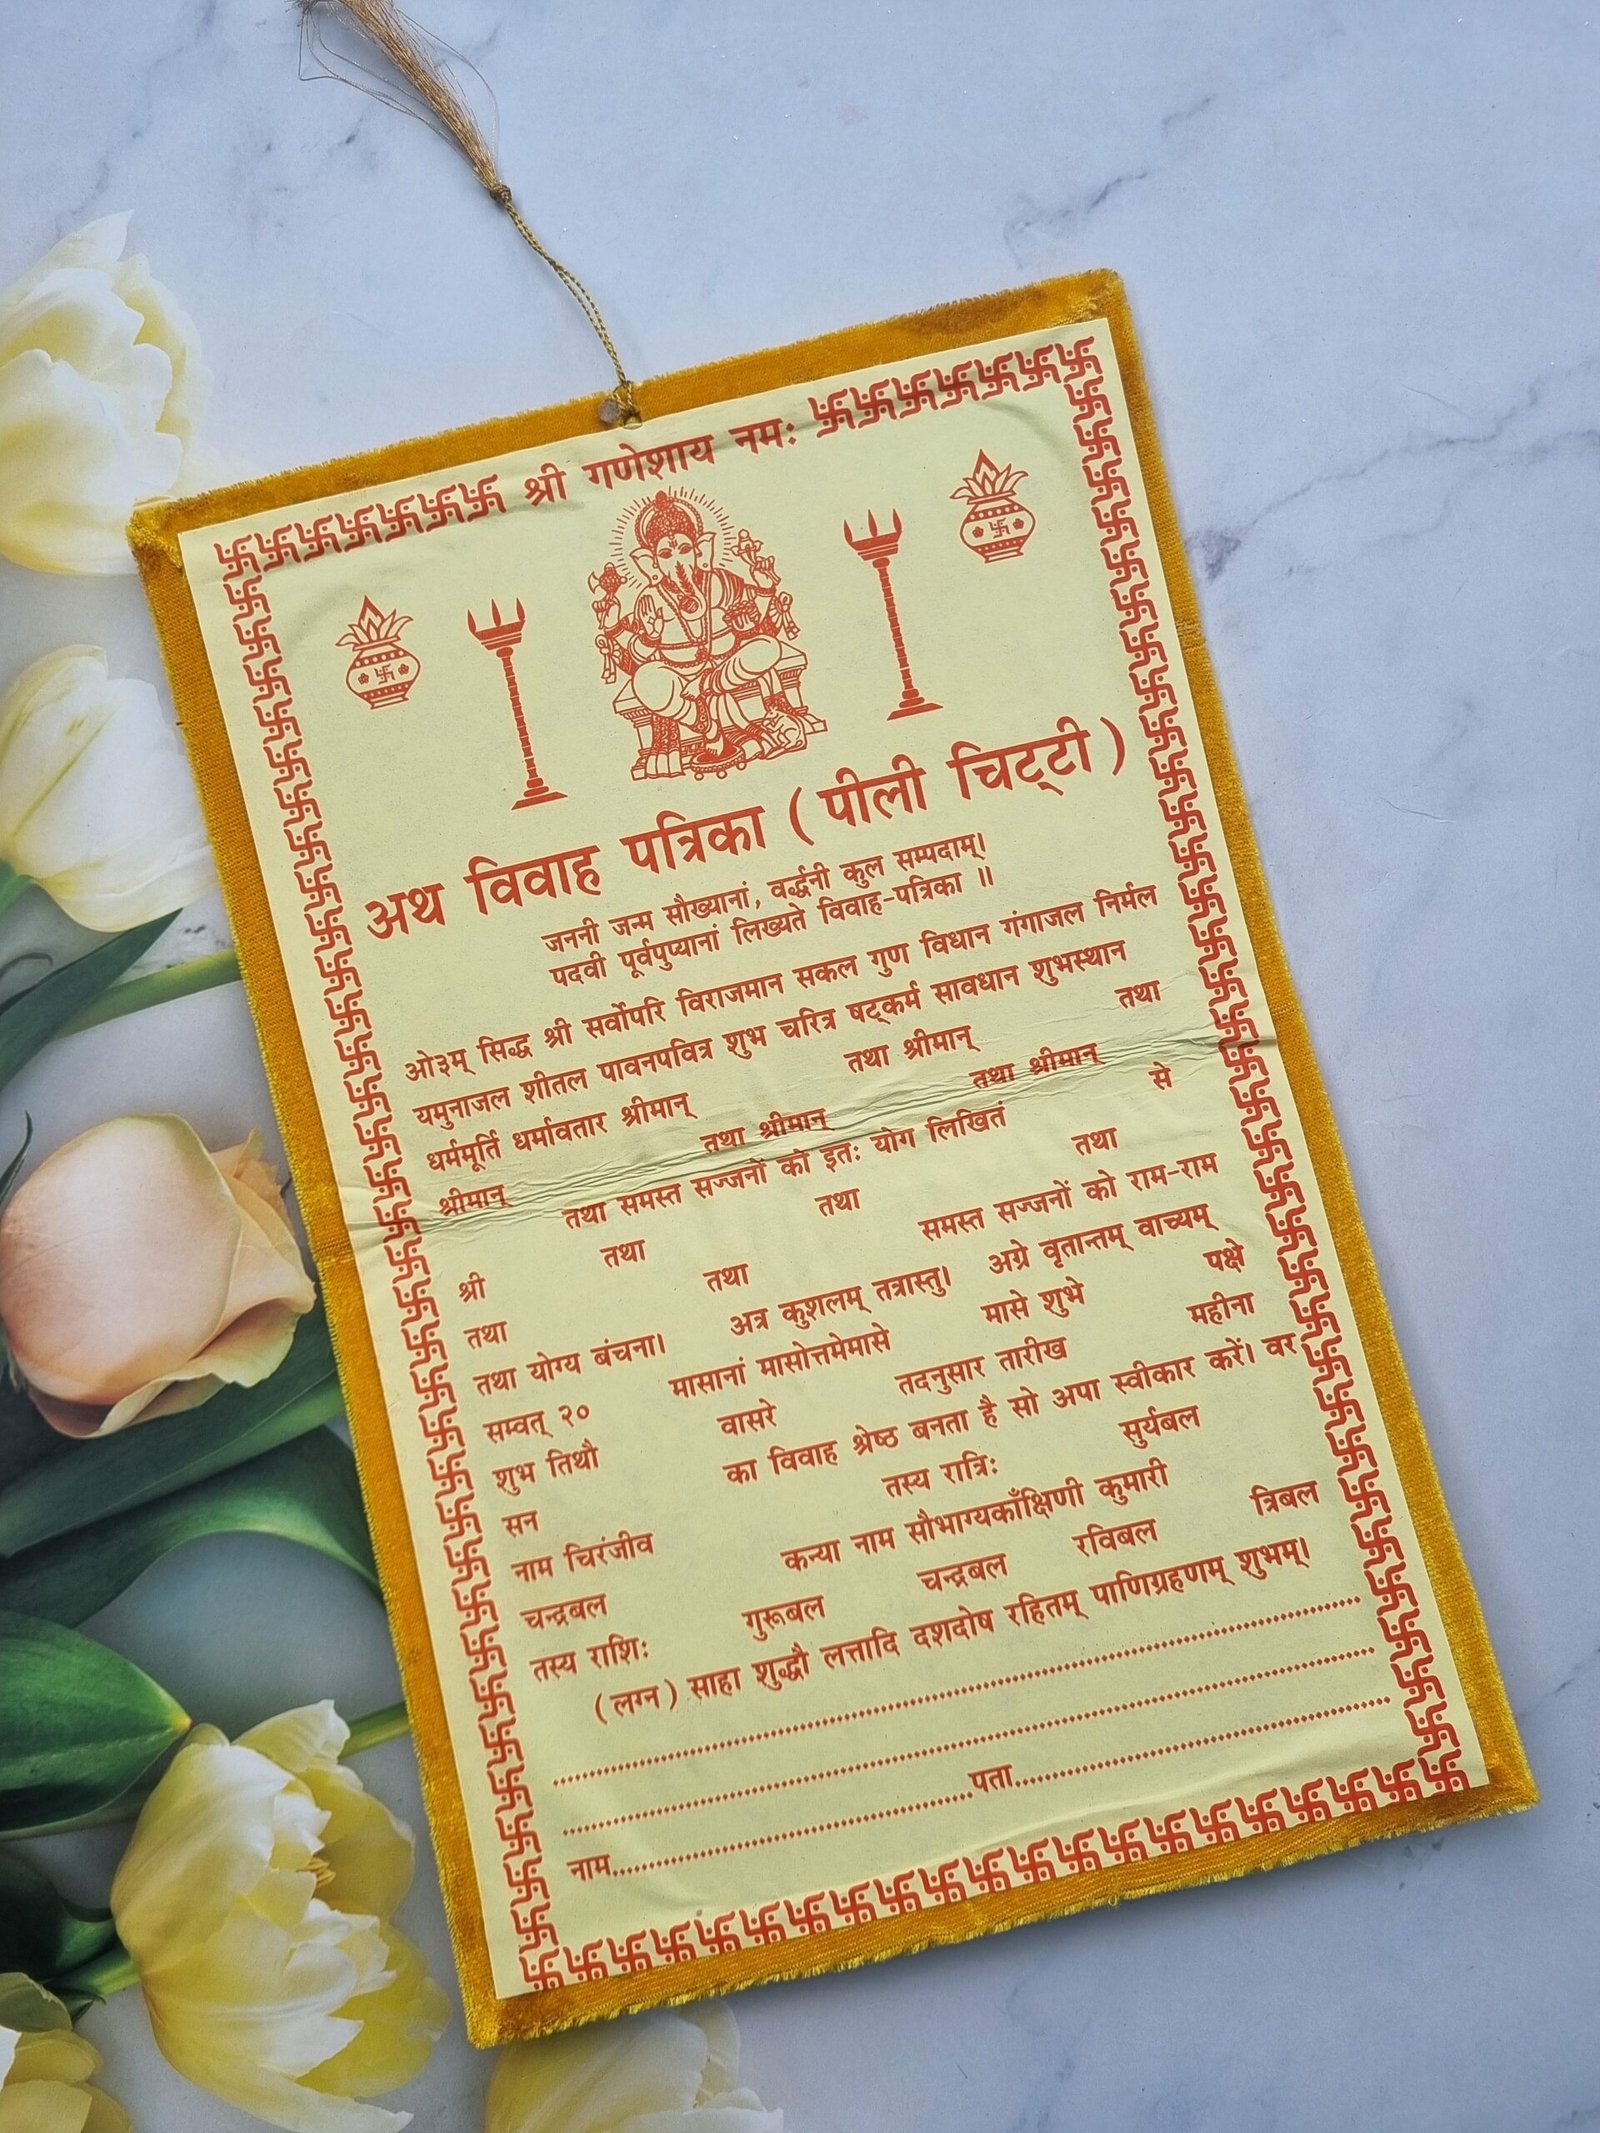 श्री गणेशाय नमः
अथ विवाह पत्रिका ( पीली चिट्टी )
जननी जन्म सौख्यानां, वर्द्धनी कुल सम्पदाम्।
पदवी पूर्वपुप्यानां लिख्यते विवाह-पत्रिका ॥
ओ३म् सिद्ध श्री सर्वोपरि विराजमान सकल गुण विधान गंगाजल निर्मल
यमुनाजल शीतल पावनपवित्र शुभ चरित्र षट्कर्म सावधान शुभस्थान
धर्ममूर्ति धर्मावतार श्रीमान् तथा श्रीमान् तथा
श्रीमान् तथा श्रीमान् तथा श्रीमान्
तथा समस्त सज्जनों को इतः योग लिखितं से
श्री तथा तथा तथा
तथा तथा समस्त सज्जनों को राम-राम
तथा योग्य बंचना। अत्र कुशलम् तत्रास्तु। अग्रे वृतान्तम् वाच्यम्
सम्वत् २० मासानां मासोत्तमेमासे मासे शुभे पक्षे
शुभ तिथौ वासरे तदनुसार तारीख महीना
सन का विवाह श्रेष्ठ बनता है सो अपा स्वीकार करें। वर
नाम चिरंजीव तस्य रात्रिः सुर्यबल
चन्द्रबल कन्या नाम सौभाग्यकाँक्षिणी कुमारी
तस्य राशिः गुरूबल चन्द्रबल रविबल त्रिबल
( लग्न ) साहा शुद्धौ लत्तादि दशदोष रहितम् पाणिग्रहणम् शुभम्।
नाम पता